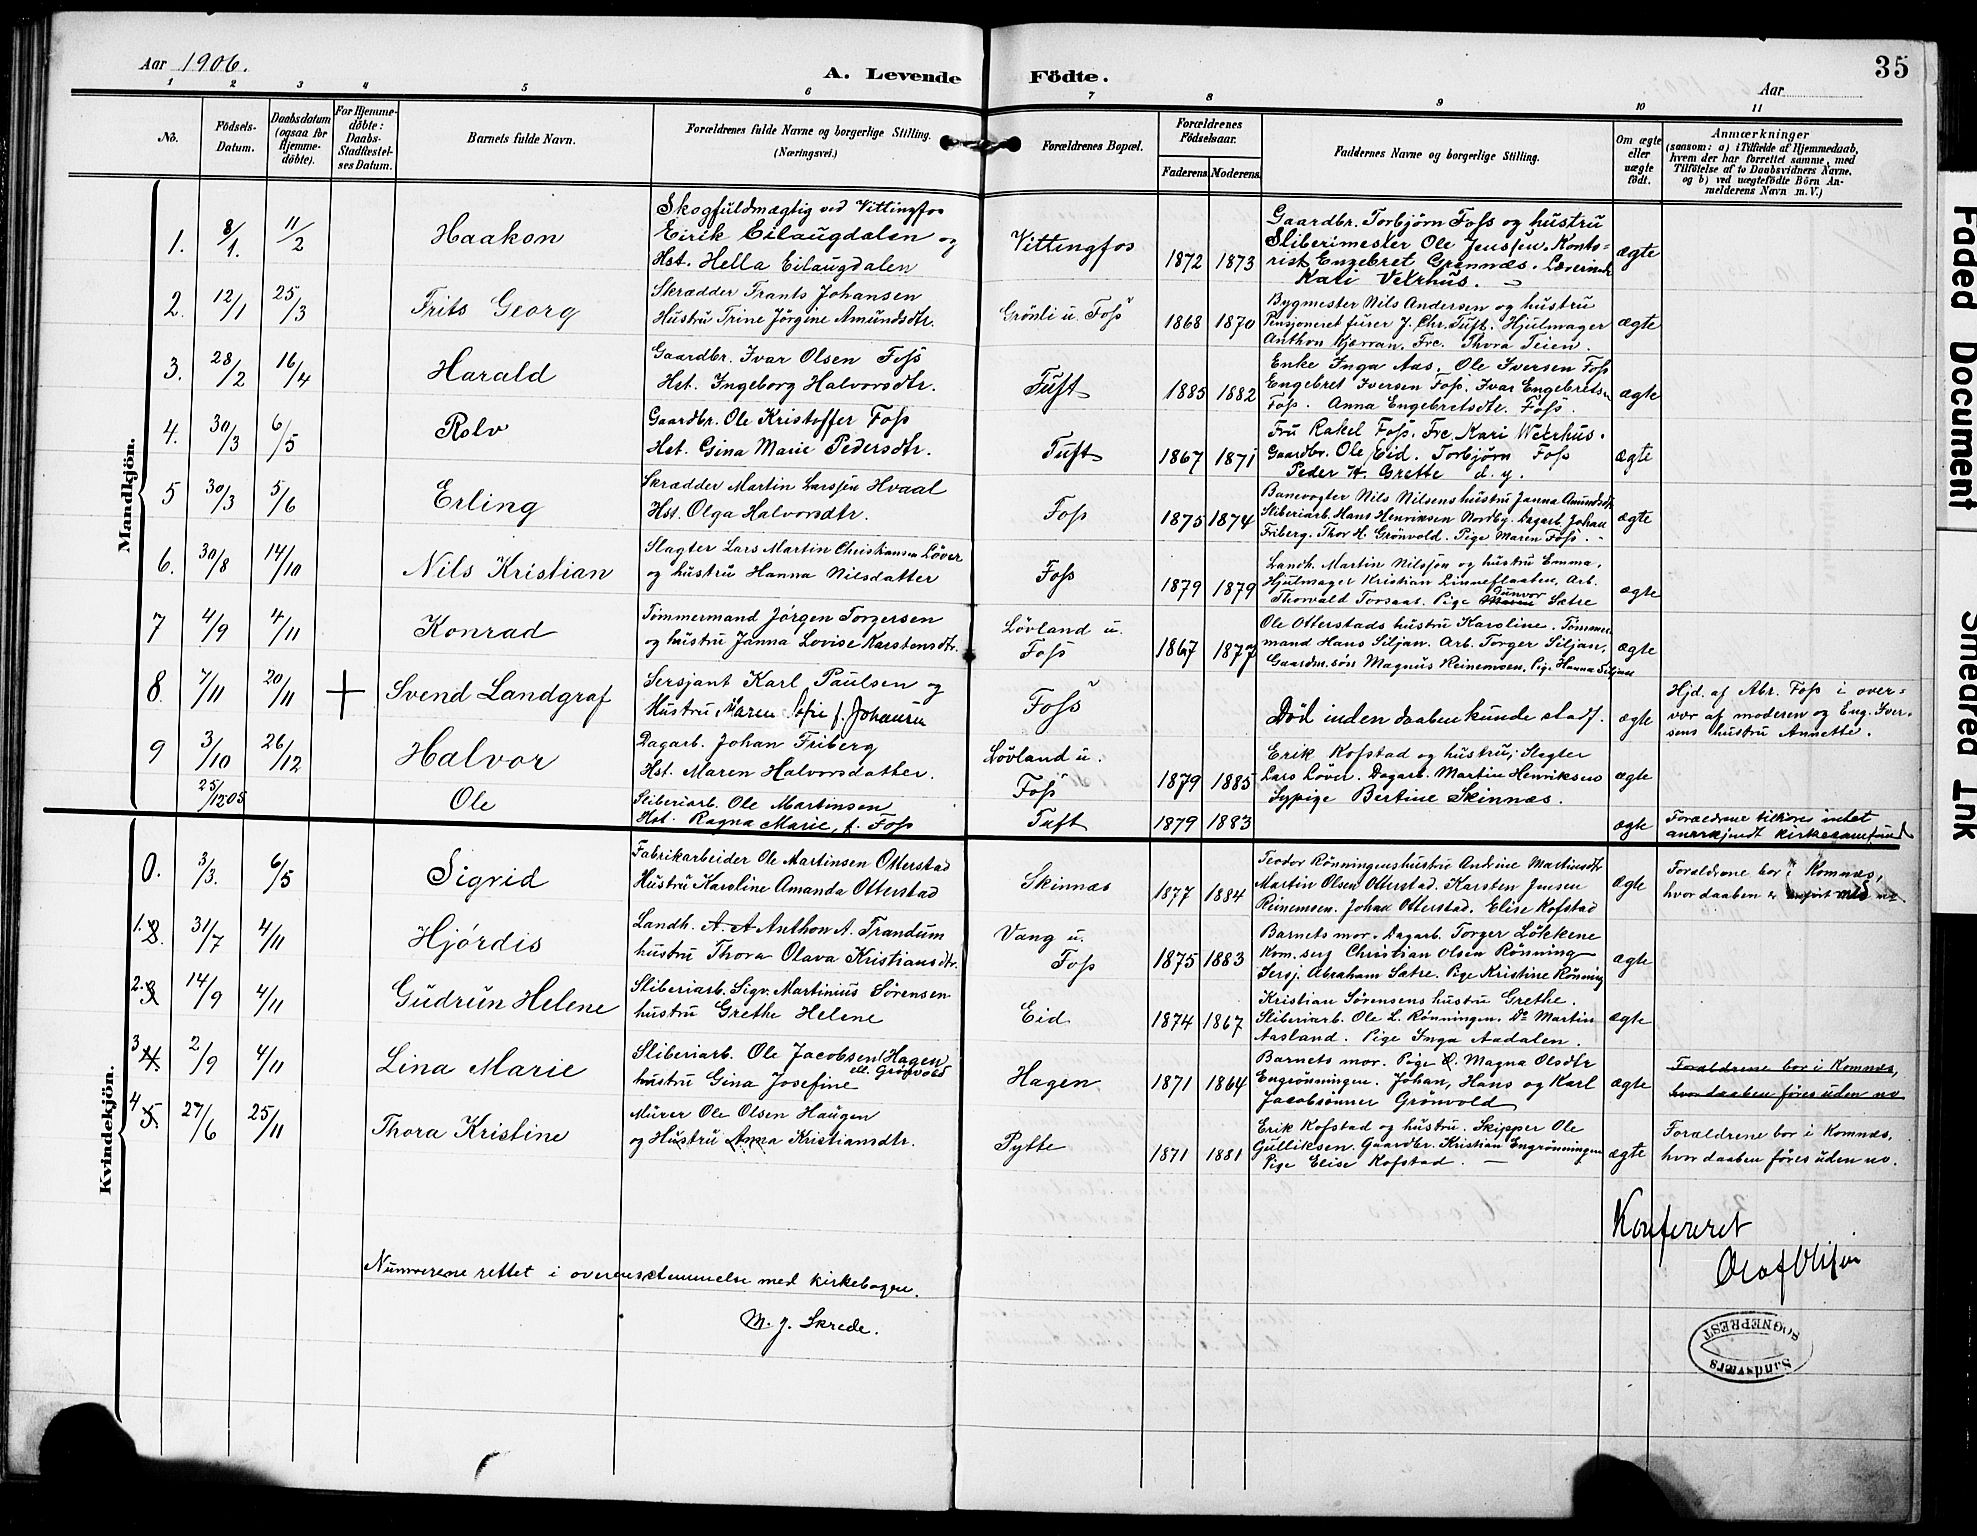 Aar 1906.
A. Levende Födte.
Aar
35
1 2 3 4 5 6 7 8 9 10 11
No.
Födsels-Datum.
Daabsdatum (ogsaa for Hjemme-döbte).
For Hjemme-döbte: Daabs-Stadfæstel-ses Datum.
Barnets fulde Navn.
Forældrenes fulde Navne og borgerlige Stilling.
(Næringsvei.)
Forældrenes Bopæl.
Forældrenes Födselsaar.
Faderens. Moderens.
Faddernes Navne og borgerlige Stilling.
Om ægte eller uægte födt.
Anmærkninger
(saasom: a) i Tilfælde af Hjemmedaab,
hvem der har forrettet samme, med
Tilföielse af to Daabsvidners Navne,
og b) ved uægtefödte Börn An-
melderens Navn m. V.)
Mandkjön.
1. 8/1. 11/2 Haakon
Skogfuldmægtig ved Vittingfos
Eirik Eilaugdalen og
Hst. Hella Eilaugdalen
Vittingfos 1872 1873
Gaardbr. Torbjørn Foss og hustru
Sliberimester Ole Jenssen. Konto-
rist Engebret Grønnæs. Lærerinde
Kari Vetrhus.
ægte
2. 12/1 25/3 Frits Georg
Skrædder Frants Johansen
Hustru Trine Jörgine Amundsdtr.
Grönli u. Foss 1868 1870
Bygmester Nils Andersen og hustru
Pensjoneret furer J. Chr. Tuft. Hjulmager
Anthon Kjørran. Frc. Thora Teien.
ægte
3. 28/2 16/4 Harald
Gaardbr. Ivar Olsen Foss
Hst. Ingeborg Halvorsdtr.
Tuft 1885 1882
Enke Inga Aas. Ole Iversen Foss
Engebret Iversen Foss. Ivar Engebretsen
Foss. Anna Engebretsdtr. Foss.
ægte
4. 30/3 6/5 Rolv
Gaardbr. Ole Kristoffer Foss
Hst. Gina Marie Pedersdtr.
Tuft 1867 1871
Fru Rakel Foss. Frc. Kari Wetrhus.
Gaardbr. Ole Eid. Torbjørn Foss
Peder H. Grette d. y.
ægte
5 30/3 5/6 Erling
Skrædder Martin Larssen Hvaal
Hst. Olga Halvorsdtr.
Foss 1875 1874
Banevogter Nils Nilsens hustru Janna Amundsdtr
Sliberiarb. Hans Henriksen Nordby. Dagarb. Johan
Friberg. Thor H. Grönvold. Pige Maren Foss.
ægte
6. 30/8 14/10 Nils Kristian
Slagter Lars Martin Christiansen Löver
og hustru Hanna Nilsdatter
Foss 1879 1879
Landh. Martin Nilssen og hustru Emma.
Hjulmager Kristian Linneflaaten. Arb.
Thorvald Torsaas. Pige Gunvor Sætre
ægte
7 4/9 4/11 Konrad
Tömmermand Jörgen Torgersen
og hustru Janna Lovise Karstensdtr.
Lövland u.
Foss 1867 1877
Ole Otterstads hustru Karoline. Tömmer
mand Hans Siljan. Arb. Torger Siljan.
Gaardm.sön Magnus Reinemoen. Pig. Hanna Siljan
ægte
8. 7/11 20/11 + Svend Landgraf
Sersjant Karl Paulsen og
Hustru Maren Sofie f. Johansen
Foss
Död inden daaben kunde stadf.
ægte
Hjd. af Abr. Foss i over-
vær af moderen og Eng. Iver-
sens hustru Annette.
9 3/10 26/12 Halvor
Dagarb. Johan Friberg
Hst. Maren Halvorsdatter.
Lövland u.
Foss 1879 1885
Erik Kofstad og hustru, Slagter
Lars Löver. Dagarb. Martin Henriksen
Sypige Bertine Skinnæs.
ægte
25/12 05 Ole
Sliberiarb. Ole Martinsen
Hst. Ragna Marie, f. Foss
Tuft 1879 1883
ægte
Forældrene tilhörer intet
anerkjendt kirkesamfund
Kvindekjön.
0. 3/3. 6/5 Sigrid
Fabrikarbeider Ole Martinsen Otterstad
Hustru Karoline Amanda Otterstad
Skinnæs 1877 1884
Teodor Rönningens hustru Andrine Martinsdtr
Martin Olsen Otterstad. Karsten Jensen
Reinemoen. Johan Otterstad. Elise Kofstad
ægte
Forældrene bor i Komnæs,
hvor daaben er
1. 2. 31/7 4/11 Hjørdis
Landh. A. A Anthon A. Trandum
hustru Thora Olava Kristiansdtr.
Vang u.
Foss 1875 1883
Barnets mor. Dagarb. Torger Lökkene
Kom. serg Christian Olsen Rönning
Sersj. Abraham Sætre. Pige Kristine Rönning
ægte
2. 3 14/9 4/11 Gudrun Helene
Sliberiarb. Sigv. Martinius Sörensen
hustru Grethe Helene
Eid 1874 1867
Kristian Sörensens hustru Grethe.
Sliberiarb. Ole L. Rönningen. Do Martin
Aasland. Pige Inga Aadalen.
ægte
3 4 2/9 4/11 Lina Marie
Sliberiarb. Ole Jacobsen Hagen
ell. Grönvold
hustru Gina Josefine
Hagen 1871 1864
Barnets mor. Pige O. Magna Olsdtr
Engrønningen. Johan, Hans og Karl
Jacobsönner Grönvold
ægte
Forældrene bor i Komnæs,
hvor daaben föres uden no
4 5 27/6 25/11 Thora Kristine
Murer Ole Olsen Haugen
og Hustru Anna Kristiansdtr.
Pytte 1871 1881
Erik Kofstad og hustru. Skipper Ole
Gulliksen. Gaardbr. Kristian Engrönningen
Pige Elise Kofstad.
ægte
Forældrene bor i Komnæs,
hvor daaben föres uden no.
Numrerene rettet i overensstemmelse med kirkebogen.
M. J. Skrede.
Konfereret
Olaf Olssøn
Sandsværs
SOGNEPREST
Faded Document
Smeared Ink